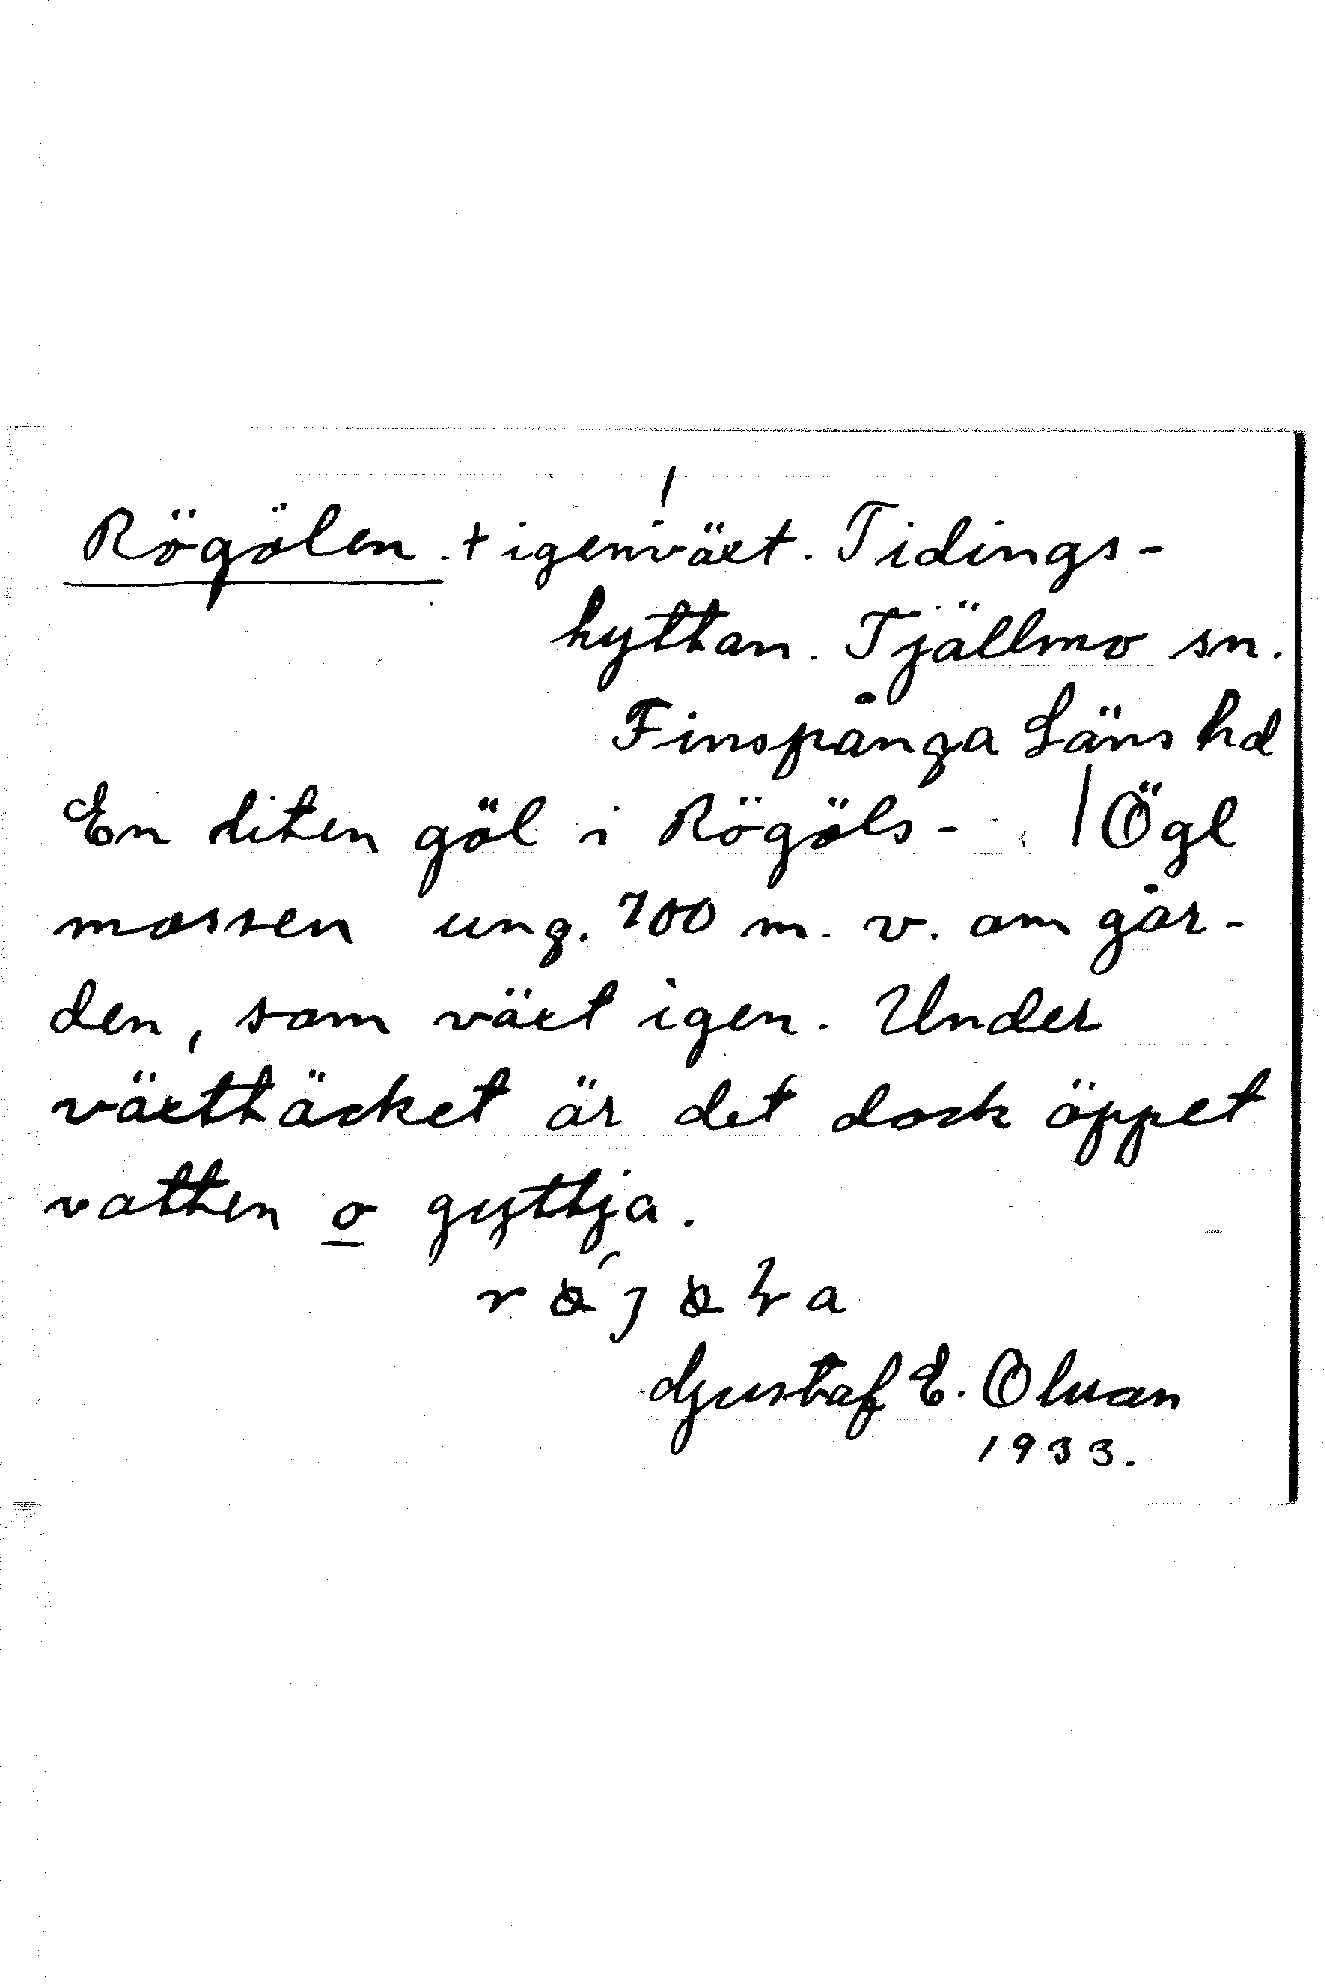 Rögölen . + igenväxt. Tidings-
hyttan. Tjällmo sn.
Finspånga Läns hd
En liten göl i Rögöls- / Ögl
mossen ung. 700 m. v. om går-
den, som växt igen. Under
växttäcket är det dock öppet
vatten o gyttja.
Gustaf E. Olsson
1933.